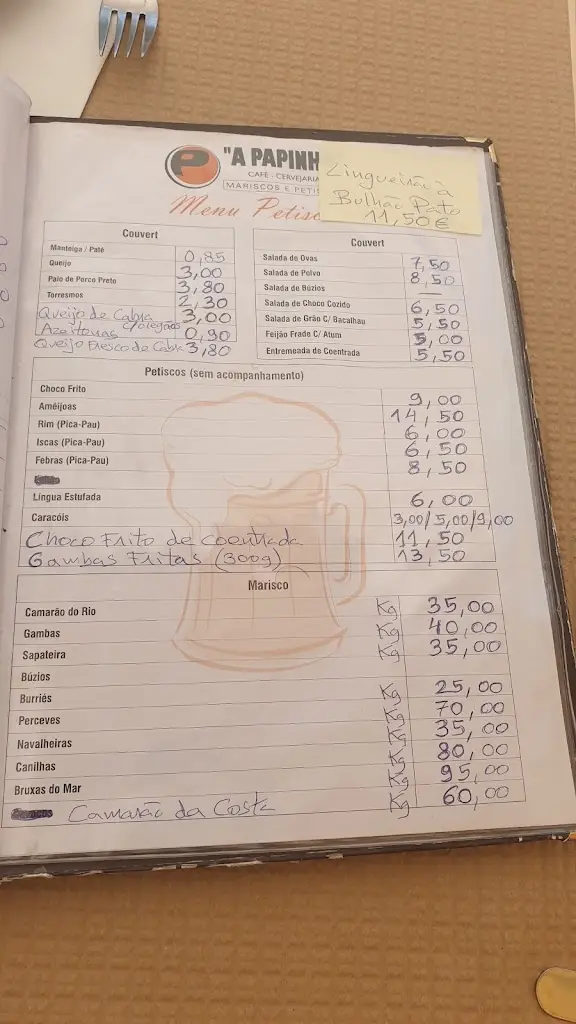 "A PAPINH
CAFÉ - CERVEJARIA
MARISCOS E PETIS
Menu Petisc
Lingueirão à
Bulhão Pato
11,50€
Couvert
Manteiga / Paté 0,85
Queijo 3,00
Paio de Porco Preto 3,80
Torresmos 2,30
Queijo de Cabra c/orégãos 3,00
Azeitonas 0,90
Queijo Fresco de Cabra 3,80
Couvert
Salada de Ovas 7,50
Salada de Polvo 8,50
Salada de Búzios —
Salada de Choco Cozido 6,50
Salada de Grão C/ Bacalhau 5,50
Feijão Frado C/ Atum 5,00
Entremeada de Coentrada 5,50
Petiscos (sem acompanhamento)
Choco Frito 9,00
Amêijoas 14,50
Rim (Pica-Pau) 6,00
Iscas (Pica-Pau) 6,50
Febras (Pica-Pau) 8,50
Língua Estufada 6,00
Caracóis 3,00/5,00/9,00
Choco Frito de Coentrada 11,50
Gambas Fritas (300g) 13,50
Marisco
Camarão do Rio Kg 35,00
Gambas Kg 40,00
Sapateira Kg 35,00
Búzios
Burriés Kg 25,00
Perceves Kg 70,00
Navalheiras Kg 35,00
Canilhas Kg 80,00
Bruxas do Mar Kg 95,00
Camarão da Costa Kg 60,00